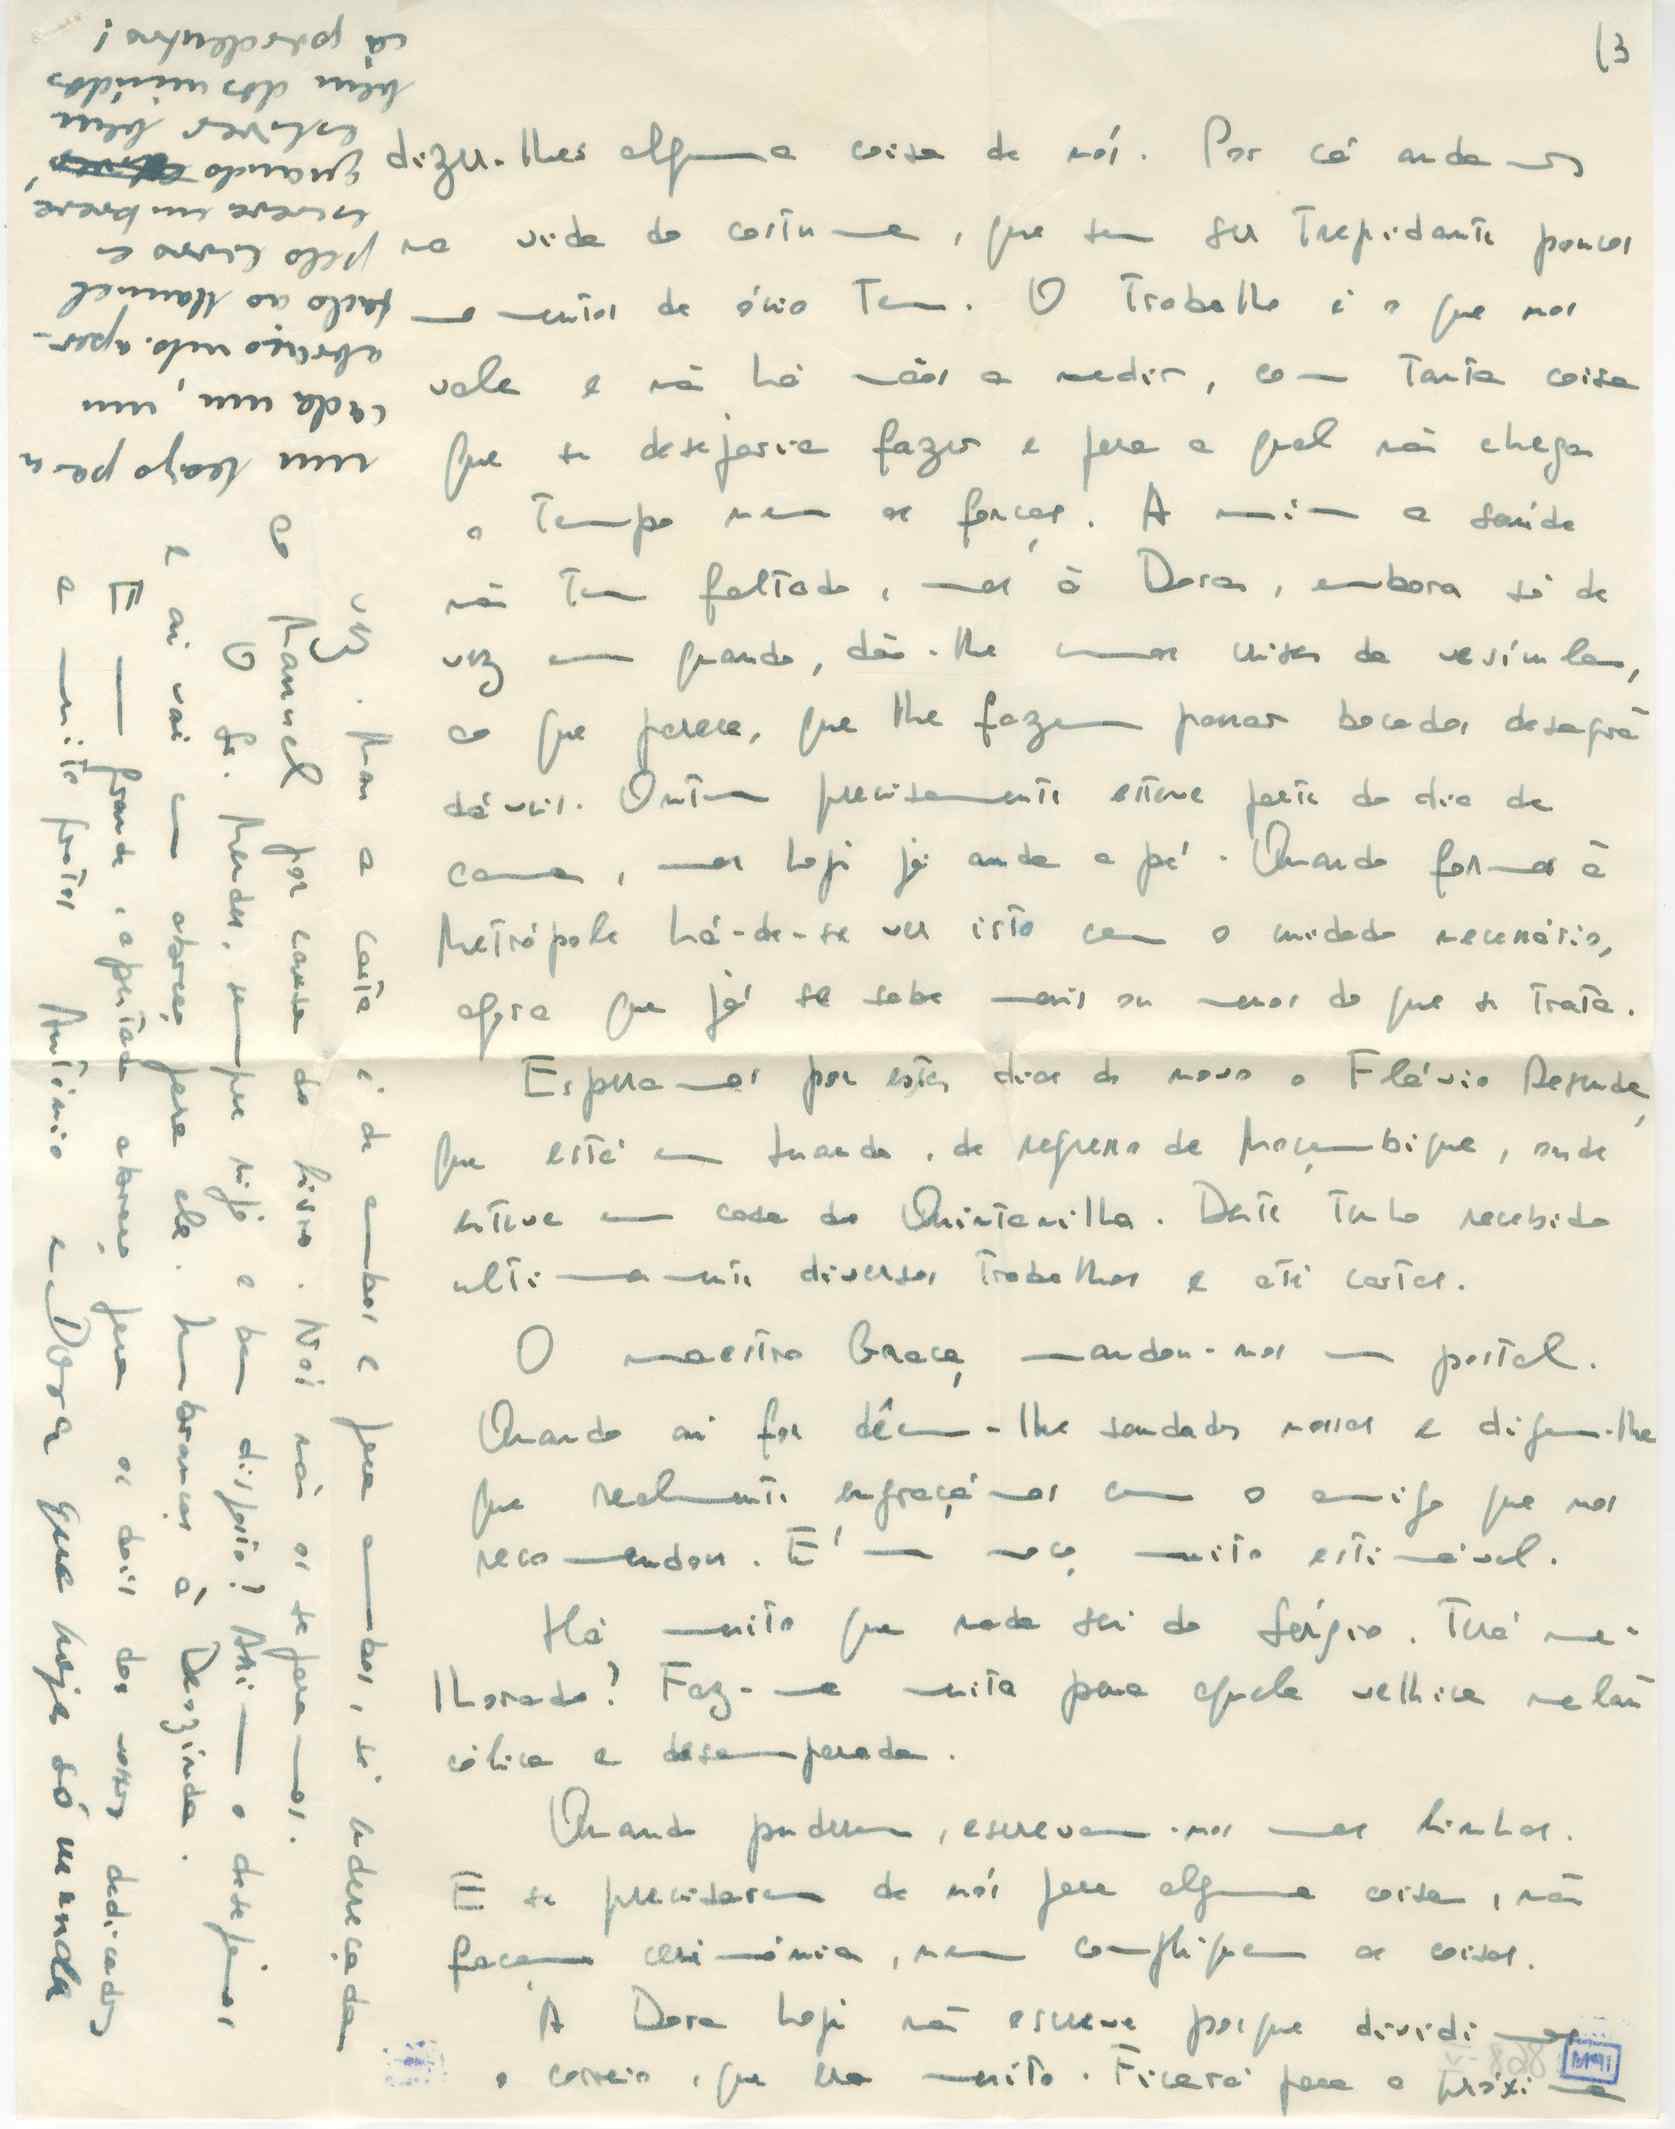 13
dizer-lhes alguma coisa de nós. Por cá andamos
na vida do costume, que sem ser trepidante poucos
momentos de ócio tem. O trabalho é o que nos
vale e não há mãos a medir, com tanta coisa
que se desejaria fazer e para a qual não chega
o tempo nem as forças. A mim a saúde
não tem faltado, mas à Dora, embora só de
vez em quando, dão-lhe umas crises da vesícula,
ao que parece, que lhe fazem passar bocados desagra
dáveis. Ontem precisamente esteve parte do dia de
cama, mas hoje já anda a pé. Quando formos à
Metrópole há-de-se ver isto com o cuidado necessário,
agora que já se sabe mais ou menos do que se trata.
Esperamos por estes dias de novo o Flávio Resende,
que está em Luanda, de regresso de Moçambique, onde
esteve em casa do Quintanilha. Deste tenho recebido
ultimamente diversos trabalhos e até cartas.
O maestro Graça mandou-nos um postal.
Quando aí for dêem-lhe saudades nossas e digam-lhe
que realmente engraçámos com o amigo que nos
recomendou. É um moço muito estimável.
Há muito que nada sei do Sérgio. Terá me-
lhorado? Faz-me muita pena aquela velhice melan
cólica e desamparada.
Quando puderem, escrevam-nos umas linhas.
E se precisarem de nós para alguma coisa, não
façam cerimónia, nem compliquem as coisas.
A Dora hoje não escreve porque dividimos
o correio, que era muito. Ficará para a próxima
vez. Mas a carta é de ambos e para ambos, só endereçada
ao Manuel por causa do livro. Nós não os separamos.
O Sr. Mendes, sempre rijo e bem disposto? Assim o desejamos
e aí vai um abraço para ele. Lembranças à Deozinda.
Em grande, apertado abraço para os dois dos vossos dedicados
e muito gratos António e Dora que hoje só manda
um beijo para
cada um, um
abraço mto. aper-
tado ao Manuel
pelo livro e
escreve em breve,
quando
estiver bem
bem dos miúdos
cá por dentro!